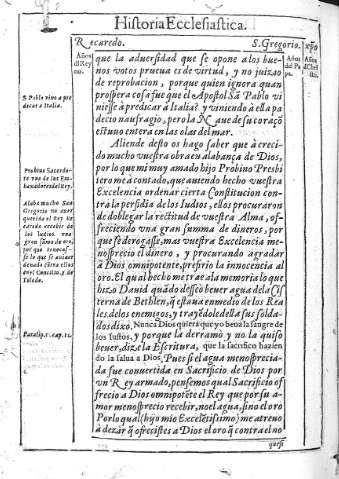 Historia Ecclesiastica.
Recaredo. S. Gregorio.
Años del Rey no.
Años del Pa pa.
Años d Chri sto.
que la aduersidad que se opone a los bue
nos votos prueua es de virtud, y no juizio
de reprobacion, porque quien ignora quan
prospera cosa fue que el Apostol Sã Pablo vi
niesse à predicar à Italia? y viniendo à ella pa
decio naufragio, pero la Naue de su coraçõ
estuuo entera en las olas del mar.
S. Pablo vino a pre
dicar a Italia.
Aliende desto os hago saber que à creci
do mucho vuestra obra en alabança de Dios,
por lo que mi muy amado hijo Probino Presbi
tero me à contado, que auiendo hecho vuestra
Excelencia ordenar cierta Constitucion con
tra la perfidia de los Iudios, ellos procuraron
de doblegar la rectitud de vuestra Alma, of
freciendo vna gran summa de dineros, por
que se derogasse, mas vuestra Excelencia me
nosprecio el dinero, y procurando agradar
à Dios omnipotente, prefirio la innocencia al
oro. El qual hecho me trae a la memoria lo que
hizo Dauid quãdo desseò beuer agua de la Cis
terna de Bethlen, q̃ estaua en medio de los Rea
les de los enemigos, y trayẽdole della sus solda-
dos dixo, Nunca Dios quiera que yo beua la sangre de
los justos, y porque la derramò y no la quiso
beuer, dize la Escritura, que la sacrifico hazien
do la salua a Dios. Pues si el agua menosprecia-
da fue conuertida en Sacrificio de Dios por
vn Rey armado, pensemos qual Sacrificio of
frecio a Dios omnipotẽte el Rey que por su a-
mor menosprecio recebir, no el agua, sino el oro
Por lo qual (hijo mio Excelẽtissimo) me atreuo
à dezir q̃ ofrecistes a Dios el oro q̃ contra el no
Probino Sacerdo-
te vno de los Em-
baxadores del Rey.
Alaba mucho San
Gregorio no auer
querido el Rey Re
caredo recebir de
los Iudios vna
gran suma de oro,
por que reuocas-
se lo que se auia or
denado cõtra ellos
en el Concilio. 3. de
Toledo.
Paralip. 1. cap. 11.
quisi